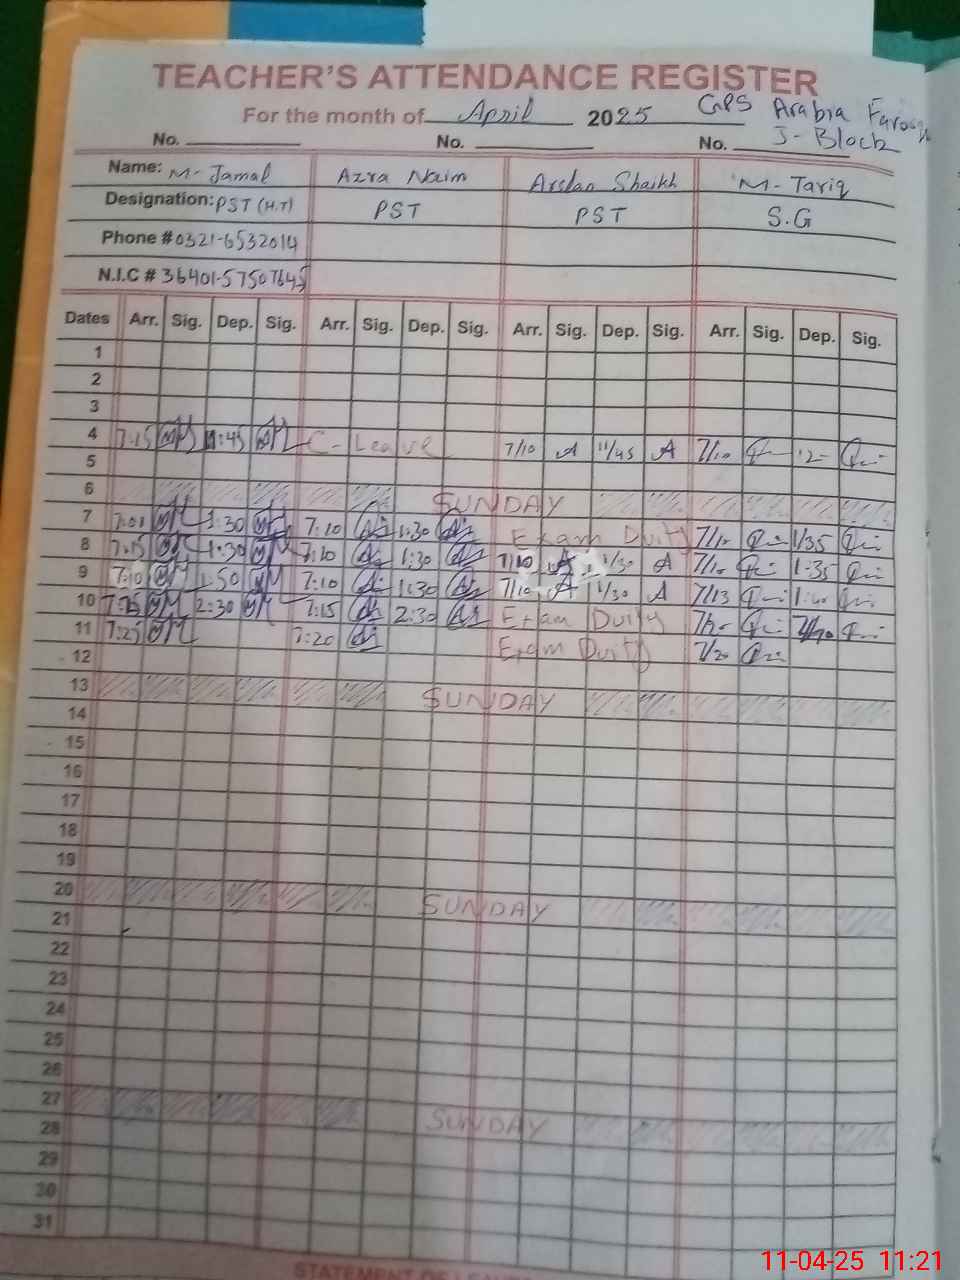 TEACHER'S ATTENDANCE REGISTER
For the month of April 2025 GPS Arabia Farooq
No. No. No. J-Block
Name: M-Jamal Azra Naim Arslan Shaikh M-Tariq
Designation: PST (H.T) PST PST S.G
Phone # 0321-6532014
N.I.C # 36401-57507645
Dates Arr. Sig. Dep. Sig. Arr. Sig. Dep. Sig. Arr. Sig. Dep. Sig. Arr. Sig. Dep. Sig.
1
2
3
4 7:15 :45 C-Leave 7/10 A 11/45 A 7/10 12
5
6 SUNDAY
7 7:01 1:30 7:10 1:30 Exam Duity 7/10 1/35
8 7:15 1:30 7:10 1:30 7/10 A 1/30 A 7/10 1:35
9 7:10 1:50 7:10 1:30 7/10 A 1/30 A 7/13
10 2:30 7:15 2:30 Exam Duity 7/20
11 7:25 7:20 Exam Duity 7/20
12
13 SUNDAY
14
15
16
17
18
19
20 SUNDAY
21
22
23
24
25
26
27 SUNDAY
28
29
30
31
STATEMENT OF
11-04-25 11:21